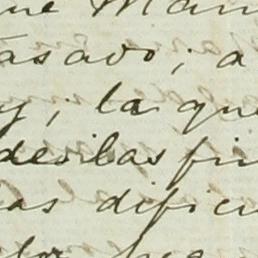 ue Man
asavo; a
y; la que
desilas fin
as dificu